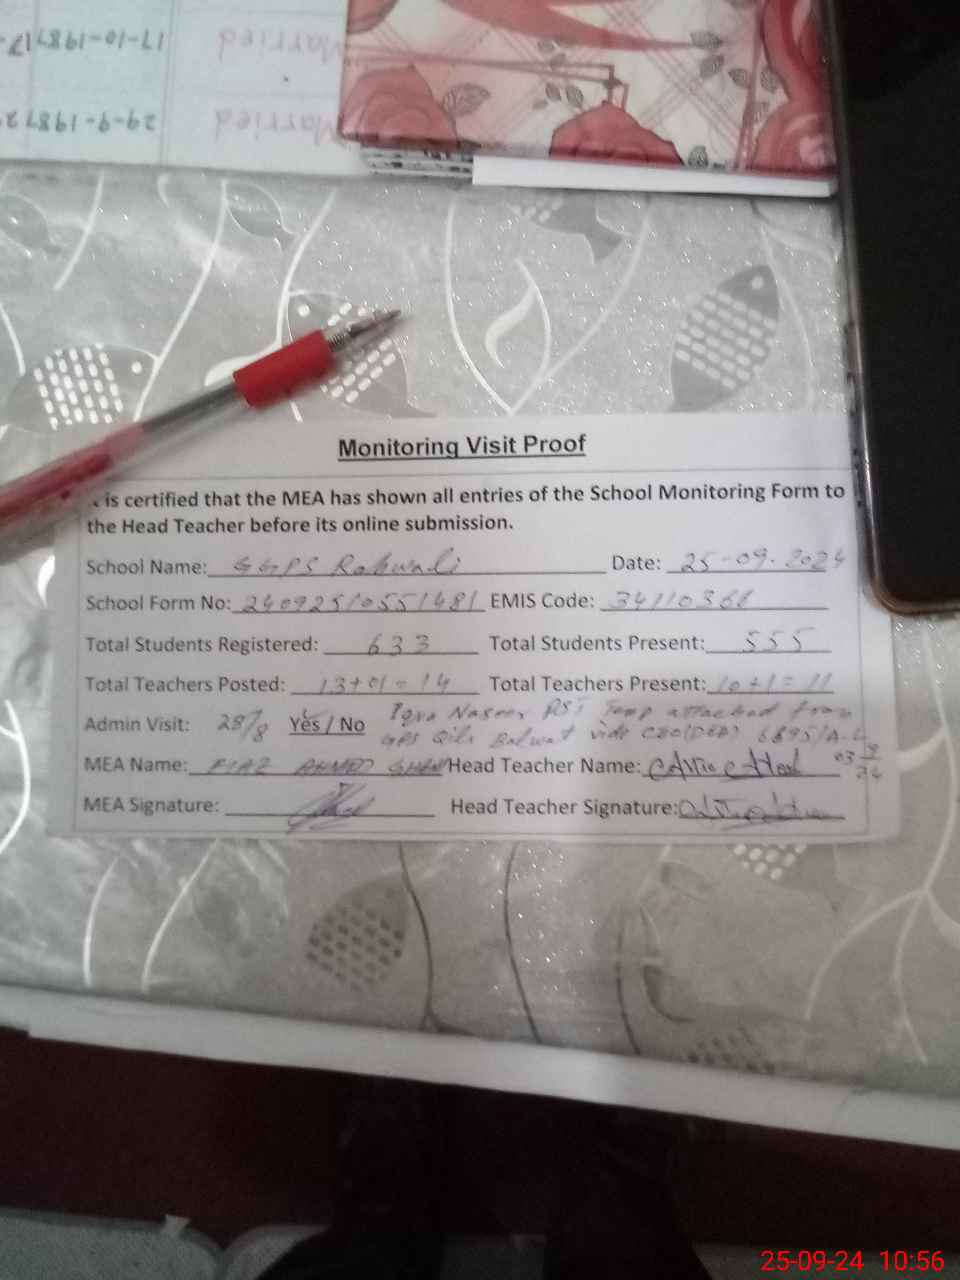 17-10-1987
Married
29-9-1987
Married
Monitoring Visit Proof
is certified that the MEA has shown all entries of the School Monitoring Form to
the Head Teacher before its online submission.
School Name: GGPS Rahwali Date: 25-09-2024
School Form No: 24092510551481 EMIS Code: 34110366
Total Students Registered: 633 Total Students Present: 555
Total Teachers Posted: 13+01=14 Total Teachers Present: 10+1=11
Admin Visit: 28/8 Yes / No Iqra Naseer PST Temp attached from
GPS Qila vide CEO(DEA) 6895/A-
MEA Name: FIAZ AHMED Head Teacher Name:
MEA Signature: Head Teacher Signature:
25-09-24 10:56